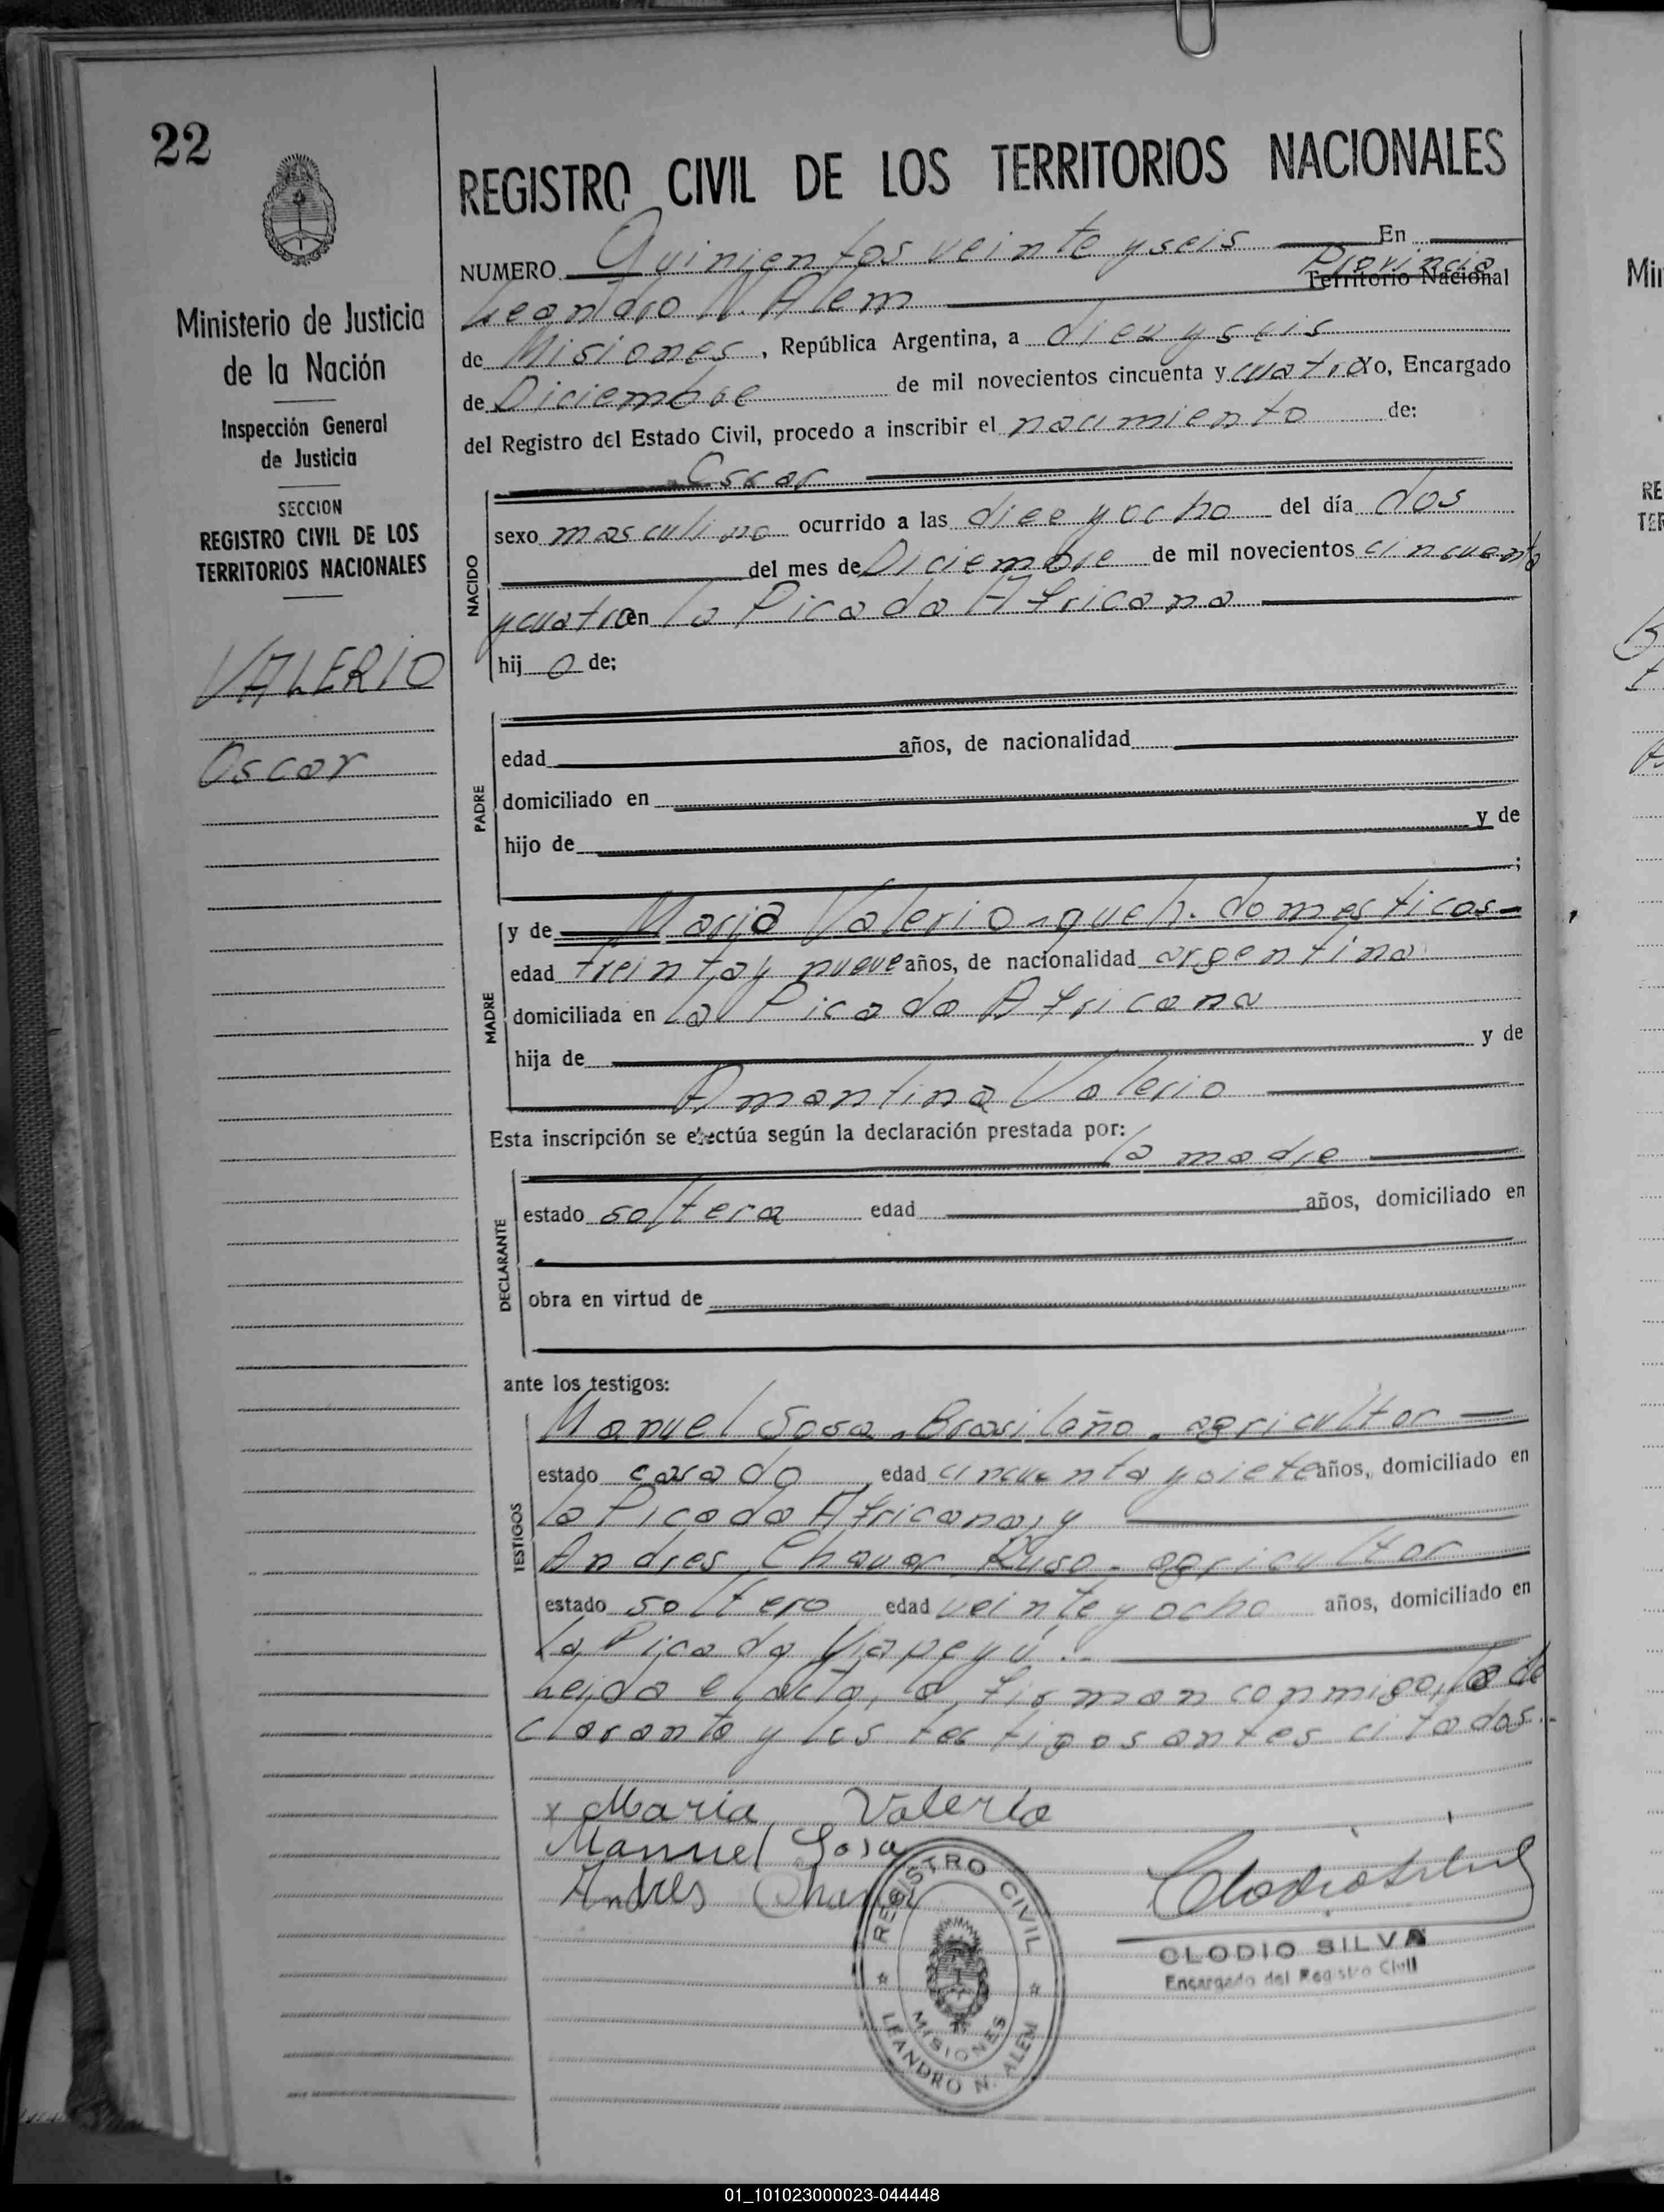 22
REGISTRO CIVIL DE LOS TERRITORIOS NACIONALES
Ministerio de Justicia
de la Nación
Inspección General
de Justicia
SECCION
REGISTRO CIVIL DE LOS
TERRITORIOS NACIONALES
VALERIO
Oscar
NUMERO Quinientos veinte y seis En
Leandro N. Alem Provincia Territorio Nacional
de Misiones, República Argentina, a diez y seis
de Diciembre de mil novecientos cincuenta y cuatro Yo, Encargado
del Registro del Estado Civil, procedo a inscribir el nacimiento de:
Oscar
NACIDO
sexo masculino ocurrido a las diez y ocho del día dos
del mes de Diciembre de mil novecientos cincuenta
y cuatro en la Picada Africana
hijo de:
PADRE
edad años, de nacionalidad
domiciliado en
hijo de y de
;
MADRE
y de Maria Valerio - queh. domesticos -
edad treinta y nueve años, de nacionalidad argentina
domiciliada en la Picada Africana
hija de y de
Amantina Valerio
Esta inscripción se efectúa según la declaración prestada por:
la madre
DECLARANTE
estado soltera edad años, domiciliado en
obra en virtud de
ante los testigos:
TESTIGOS
Manuel Sosa. Brasileño. agricultor
estado casado edad cincuenta y siete años, domiciliado en
la Picada Africana, y
Andres Ruso - agricultor
estado soltero edad veinte y ocho años, domiciliado en
la Picada Yiapeyú.
Leida el acta, la firman conmigo, la de
clarante y los testigos antes citados.-
x Maria Valerio
Manuel Sosa
Andres
REGISTRO CIVIL
MISIONES
LEANDRO N. ALEM
Clodio Silva
CLODIO SILVA
Encargado del Registro Civil
Min
RE
TER
01_101023000023-044448